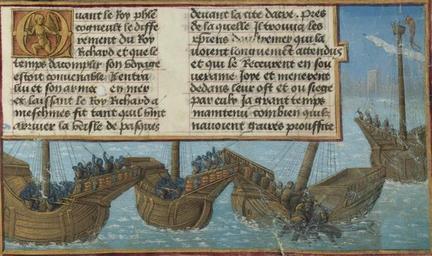 Quant le Roy phle
congneult le diffe
rement du Roy
Richard et que le
temps dacomplir son voyage
estoit conuenable. Il entra
lui et son armee en mer
et laissant le Roy Richard a
meschines fit tant quil vint
arriuer la veisle de pasques
deuant la cite dacre. Pres
de la quelle Il trouua les
chrens doultremer qui la
uoient longuement attendus
et qui le Receurent en sou
ueraine Joye et menerent
dedans leur ost et ou siege
par eulx Ja grant temps
maintenu combien quilz
nauoient gaires prouffite